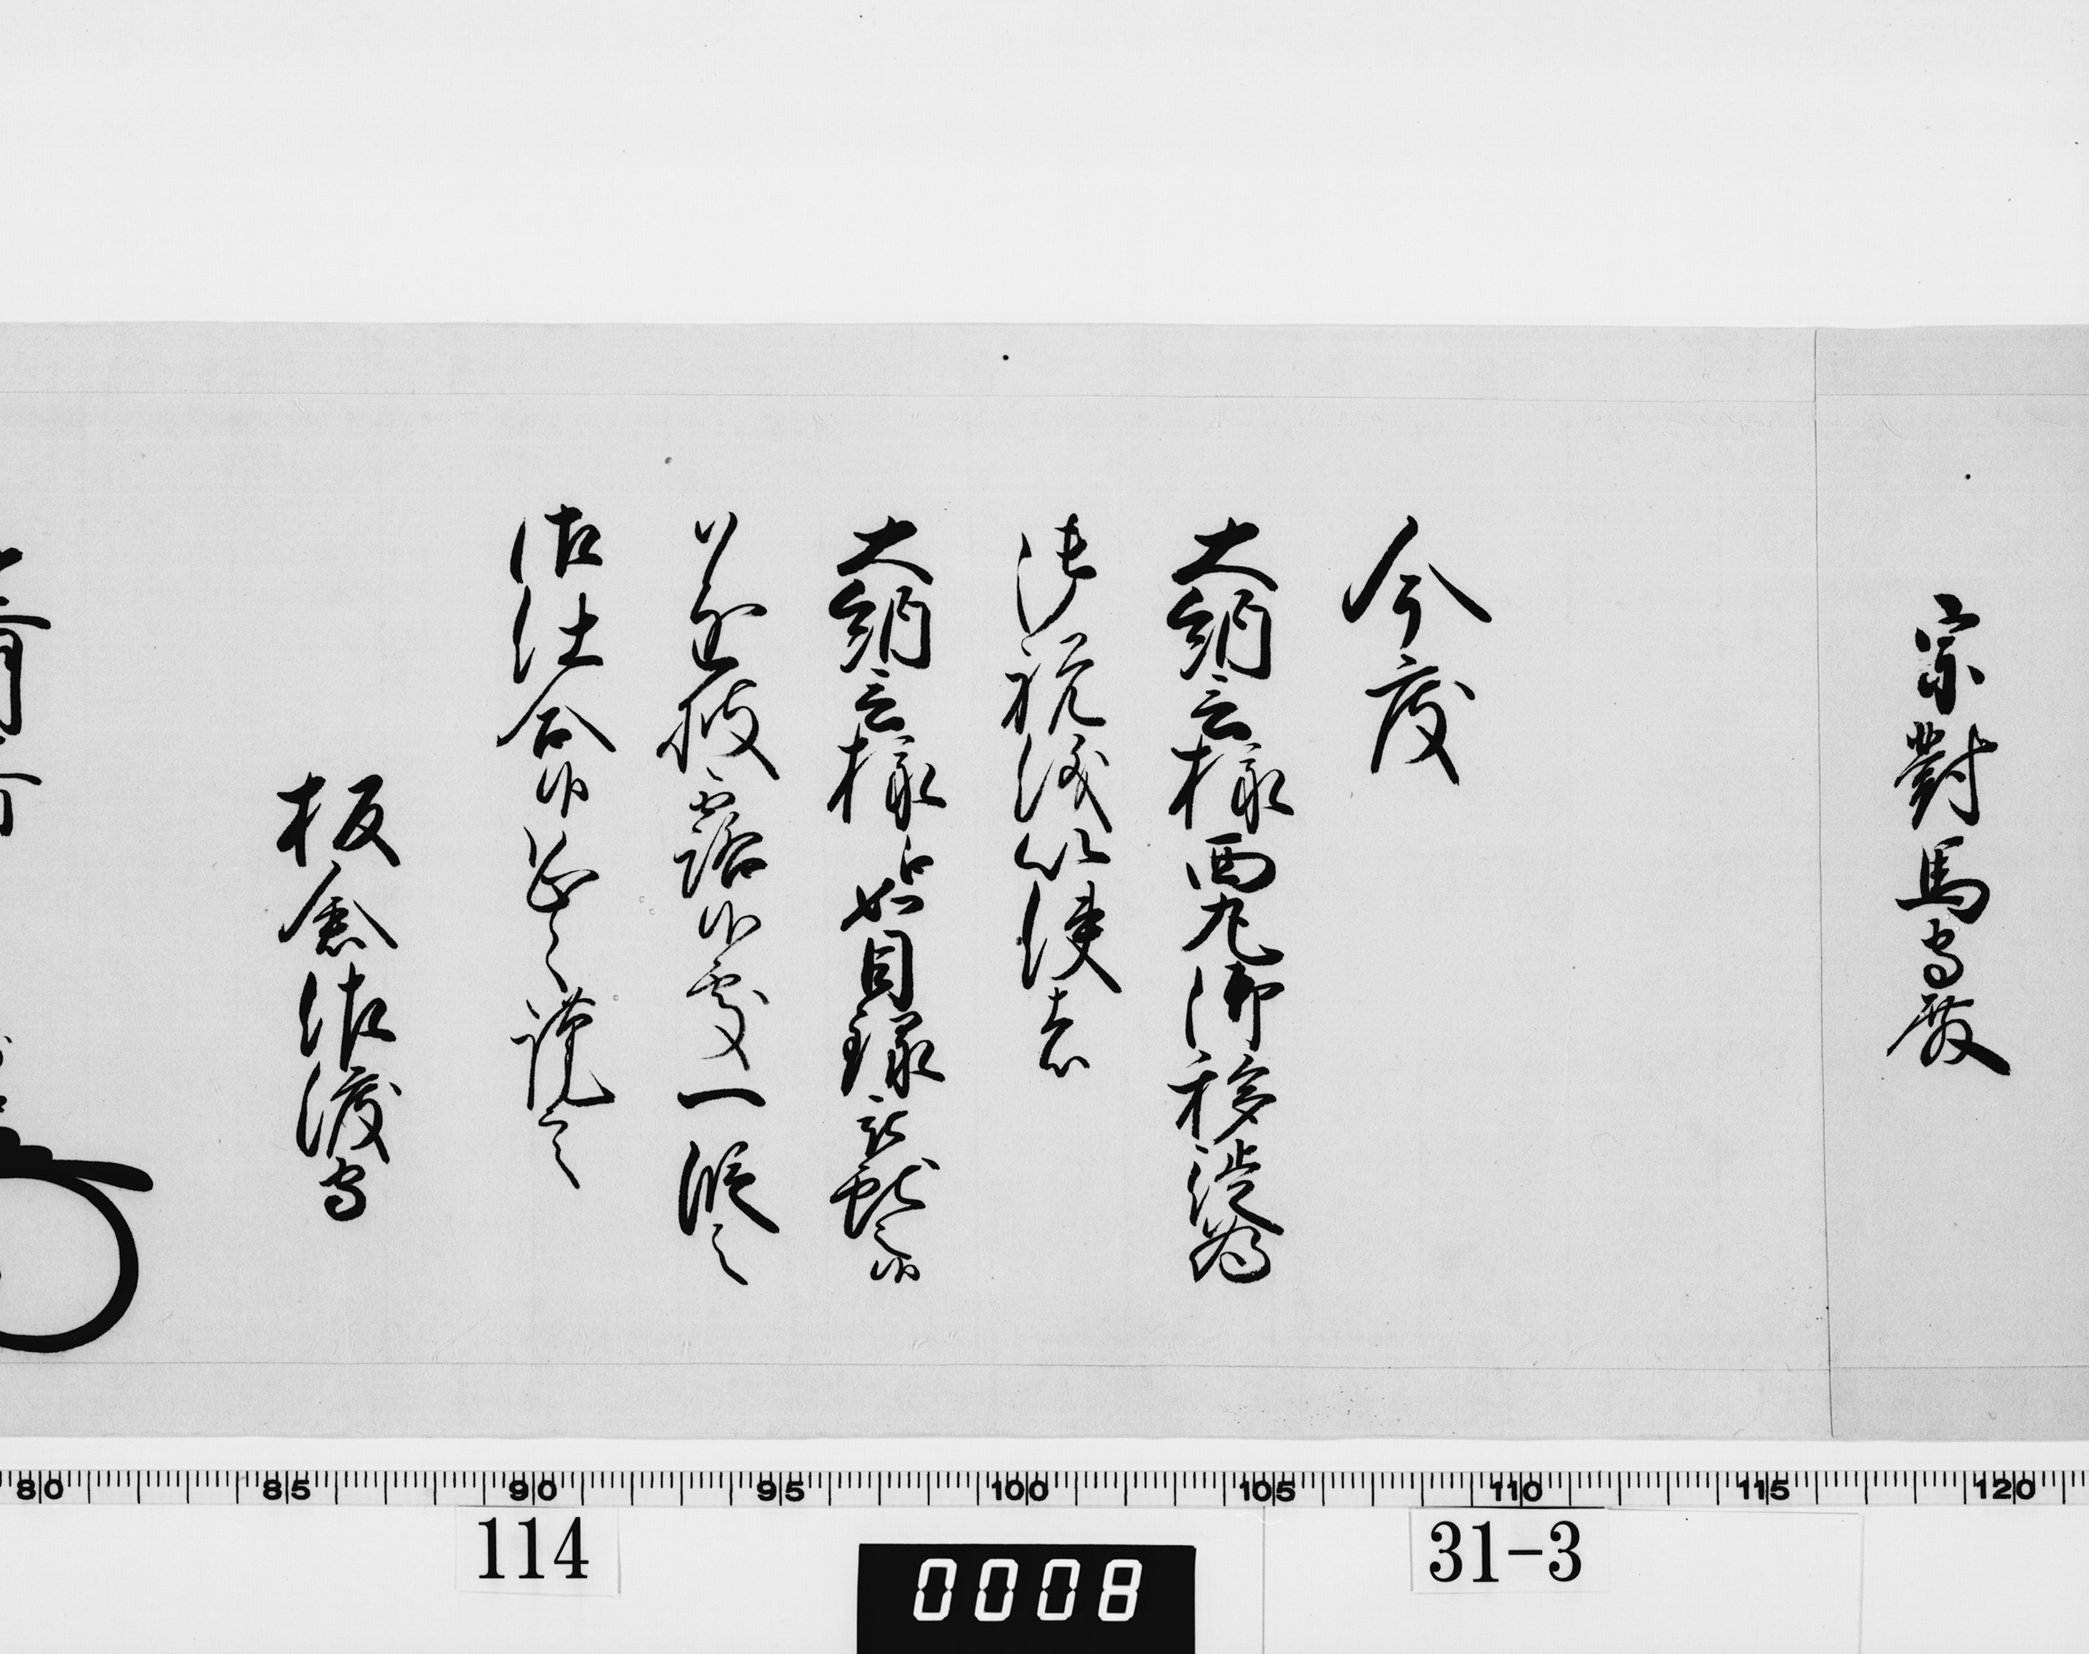 宗對馬守殿
今度
大納言様西丸御移徙為
御祝儀以使者
大納言様江如目録被獻之候
遂披露候處一段之
御仕合候恐々謹言
板倉佐渡守
80 85 90 95 100 105 110 115 120
114
0008
31-3